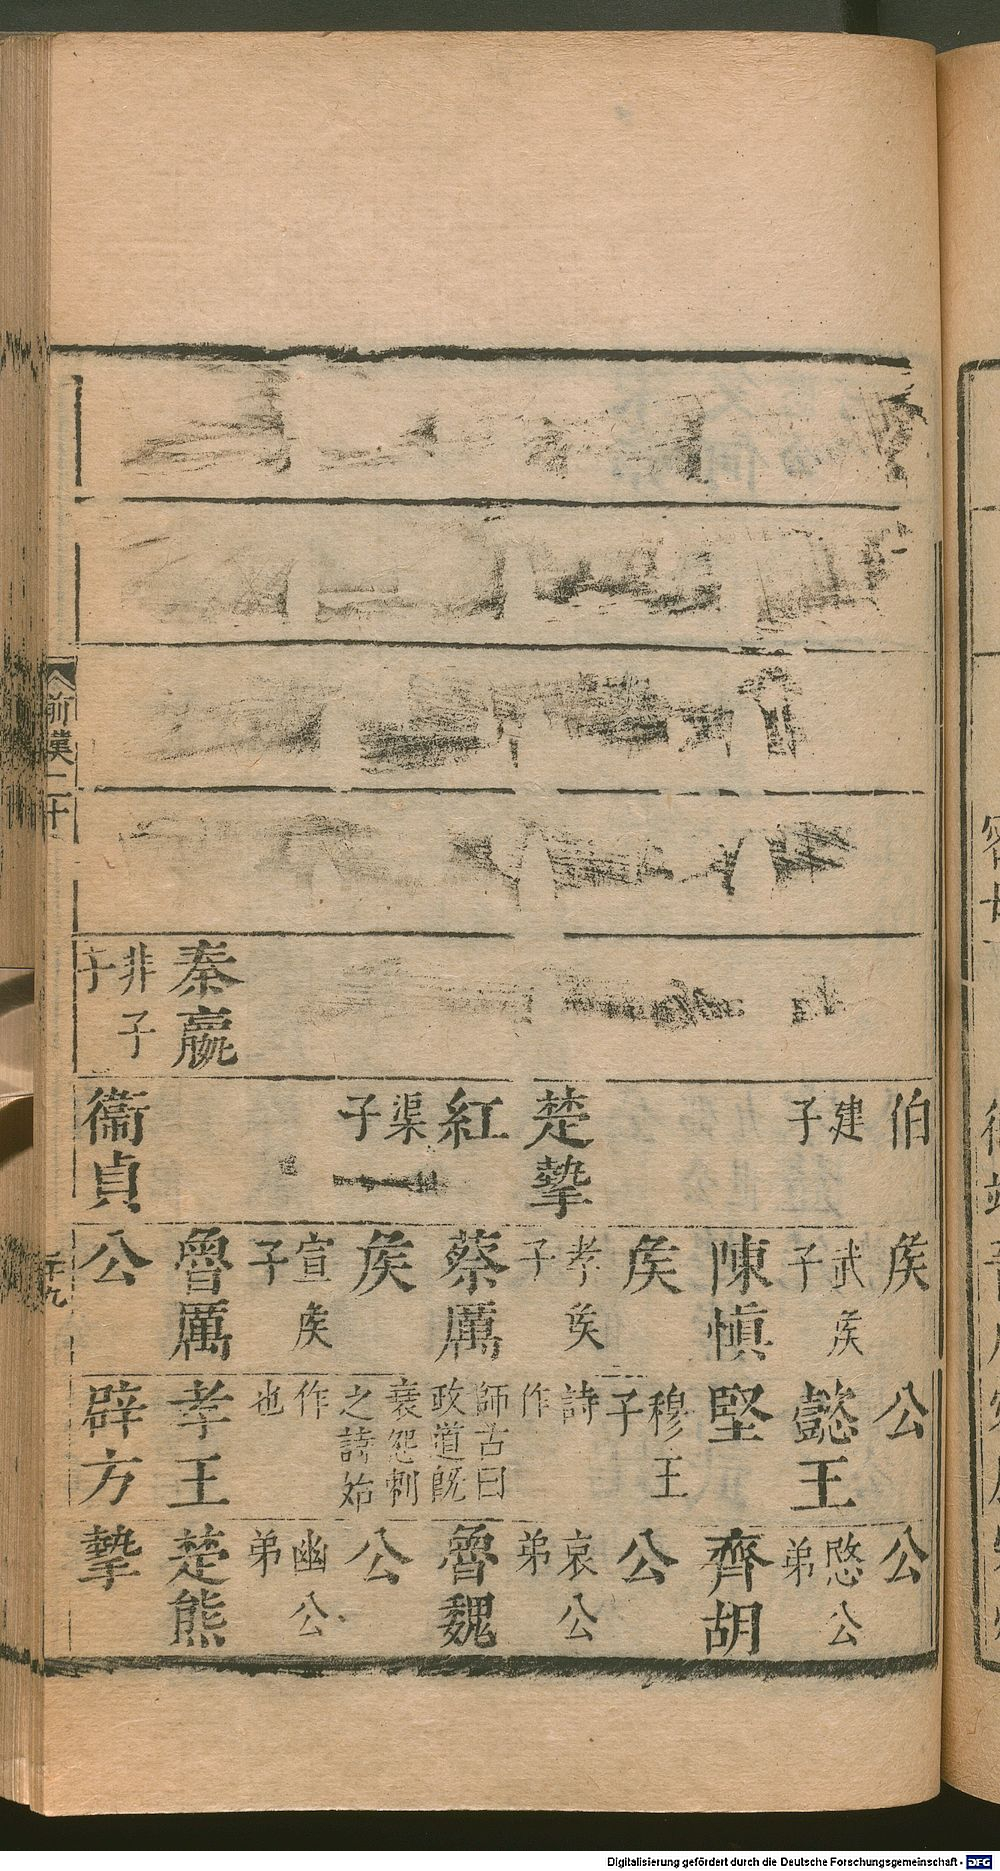 秦嬴
非子
子
伯
建
子
楚摯
紅
渠
子
衞貞
侯
武侯
子
陳慎
侯
孝侯
子
蔡厲
侯
宣侯
子
魯厲
公
公
懿王
堅
穆王
子
詩
作
師古曰
政道旣
衰怨刺
之詩始
作
也
孝王
辟方
公
愍公
弟
齊胡
公
哀公
弟
魯魏
公
幽公
弟
楚熊
摯
前漢二十
Digitalisierung gefördert durch die Deutsche Forschungsgemeinschaft - DFG